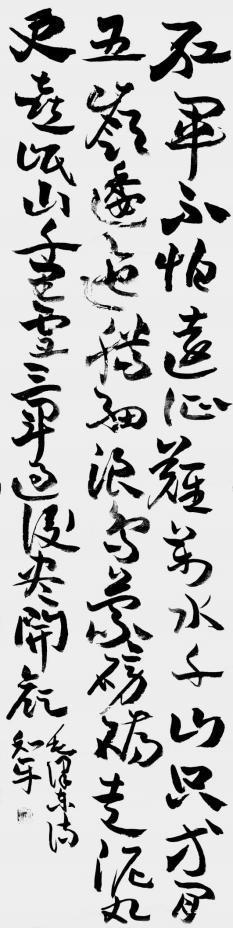 紅軍不怕遠征難萬水千山只等閒
五嶺逶迤騰細浪烏蒙磅礴走泥丸
更喜岷山千里雪三軍過後盡開顏
毛澤東詩